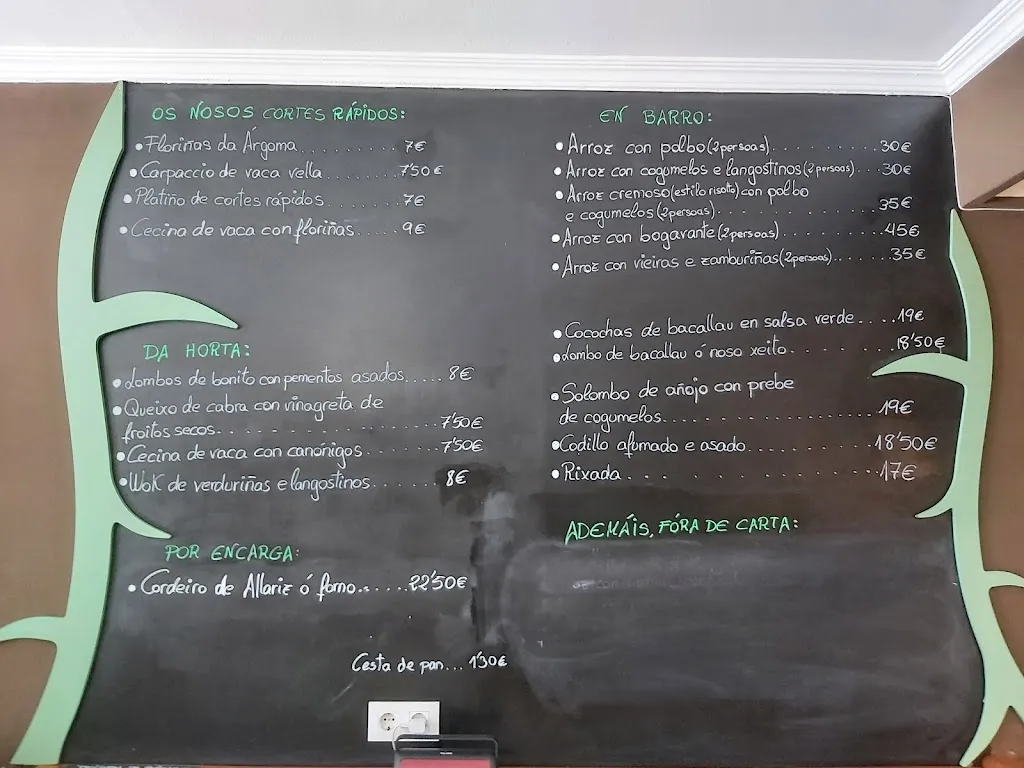 OS NOSOS CORTES RÁPIDOS:
• Floriñas da Árgoma......... 7€
• Carpaccio de vaca vella......... 7'50€
• Platiño de cortes rápidos......... 7€
• Cecina de vaca con floriñas...... 9€
DA HORTA:
• Lombos de bonito con pementos asados..... 8€
• Queixo de cabra con vinagreta de
froitos secos......... 7'50€
• Cecina de vaca con canónigos......... 7'50€
• Wok de verduriñas e langostinos......... 8€
POR ENCARGA:
• Cordeiro de Allariz ó forno..... 22'50€
Cesta de pan... 1'30€
EN BARRO:
• Arroz con polbo (2 persoas)......... 30€
• Arroz con cogumelos e langostinos (2 persoas)... 30€
• Arroz cremoso (estilo risoto) con polbo
e cogumelos (2 persoas)......... 35€
• Arroz con bogavante (2 persoas)......... 45€
• Arroz con vieiras e zamburiñas (2 persoas)...... 35€
• Cocochas de bacallau en salsa verde.... 19€
• Lombo de bacallau ó noso xeito......... 18'50€
• Solombo de añojo con prebe
de cogumelos......... 19€
• Codillo afumado e asado......... 18'50€
• Rixada......... 17€
ADEMÁIS, FÓRA DE CARTA: